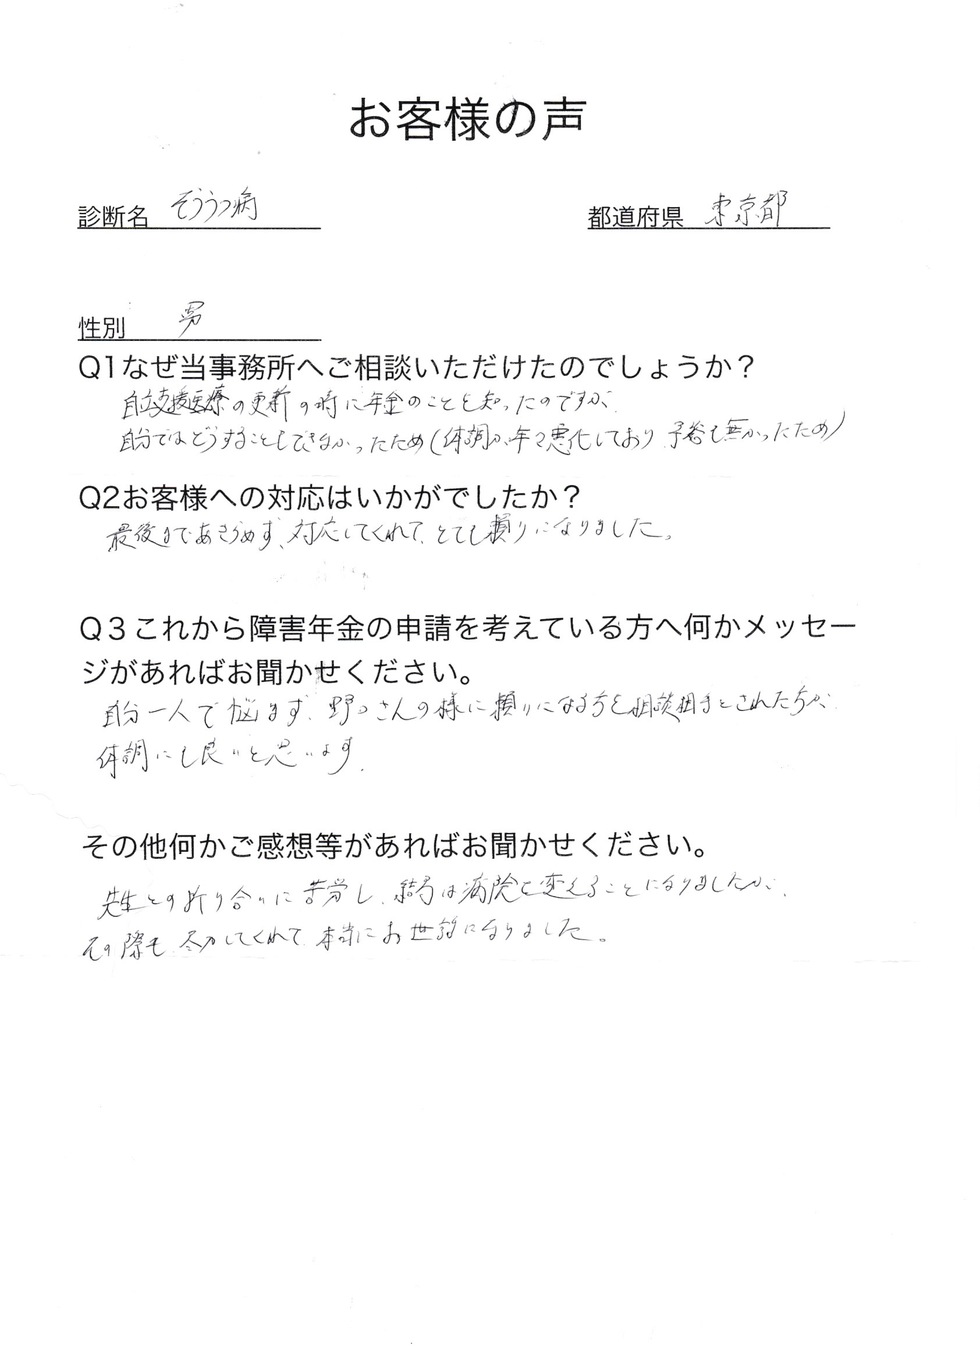 お客様の声
診断名 そううつ病
都道府県 東京都
性別 男
Q1なぜ当事務所へご相談いただけたのでしょうか？
自立支援医療の更新の時に年金のことを知ったのですが、
自分ではどうすることもできなかったため(体調が年々悪化しており 予裕も無かったため)
Q2お客様への対応はいかがでしたか？
最後まであきらめず、対応してくれて、とても頼りになりました。
Q３これから障害年金の申請を考えている方へ何かメッセー
ジがあればお聞かせください。
自分一人で悩まず、野口さんの様に頼りになる方を相談相手とされた方が、
体調にも良いと思います。
その他何かご感想等があればお聞かせください。
先生との折り合いに苦労し、結局は病院を変えることになりましたが、
その際も、尽力してくれて、本当にお世話になりました。